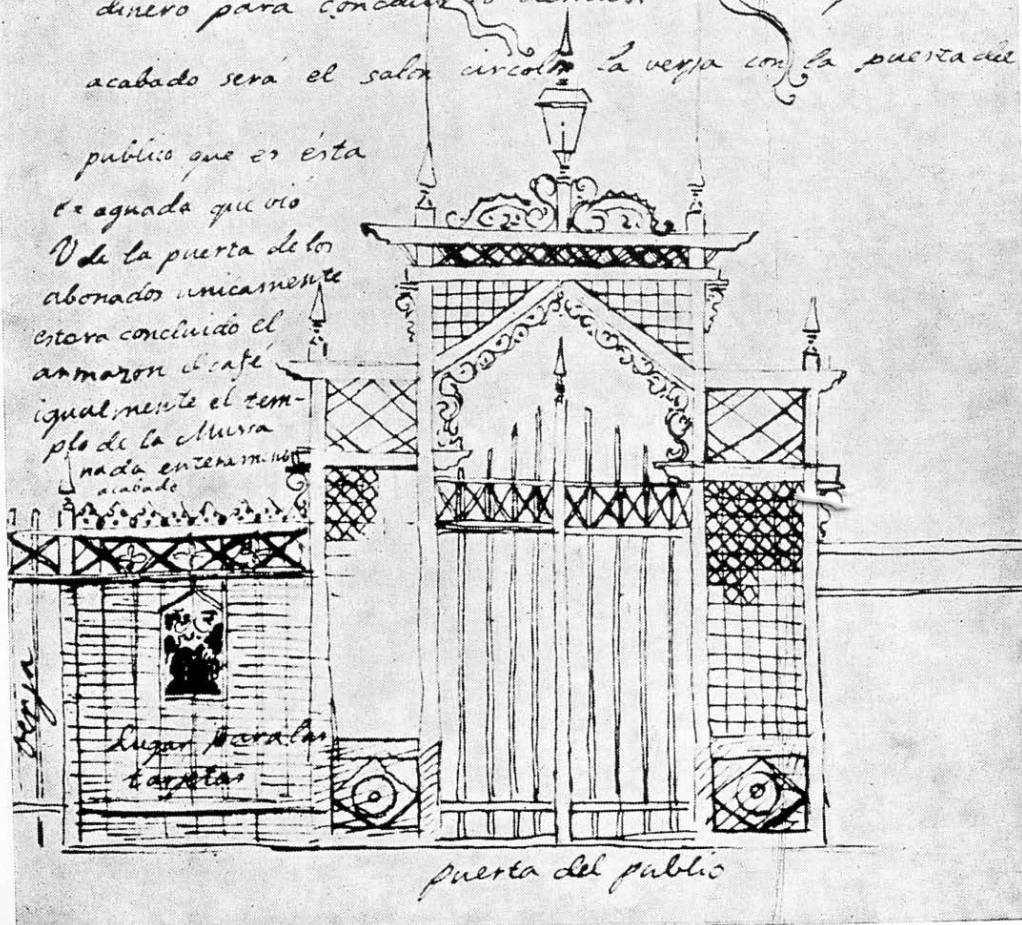 dinero para
acabado será el salon circolar la verja con la puerta del
publico que es ésta
aguada que vio
V de la puerta de los
abonados unicamente
estara concluido el
armazon el café
igualmente el tem-
plo de la Mussa
nada enteramente
acabado
verja
Lugar para las
tarjetas
puerta del publico